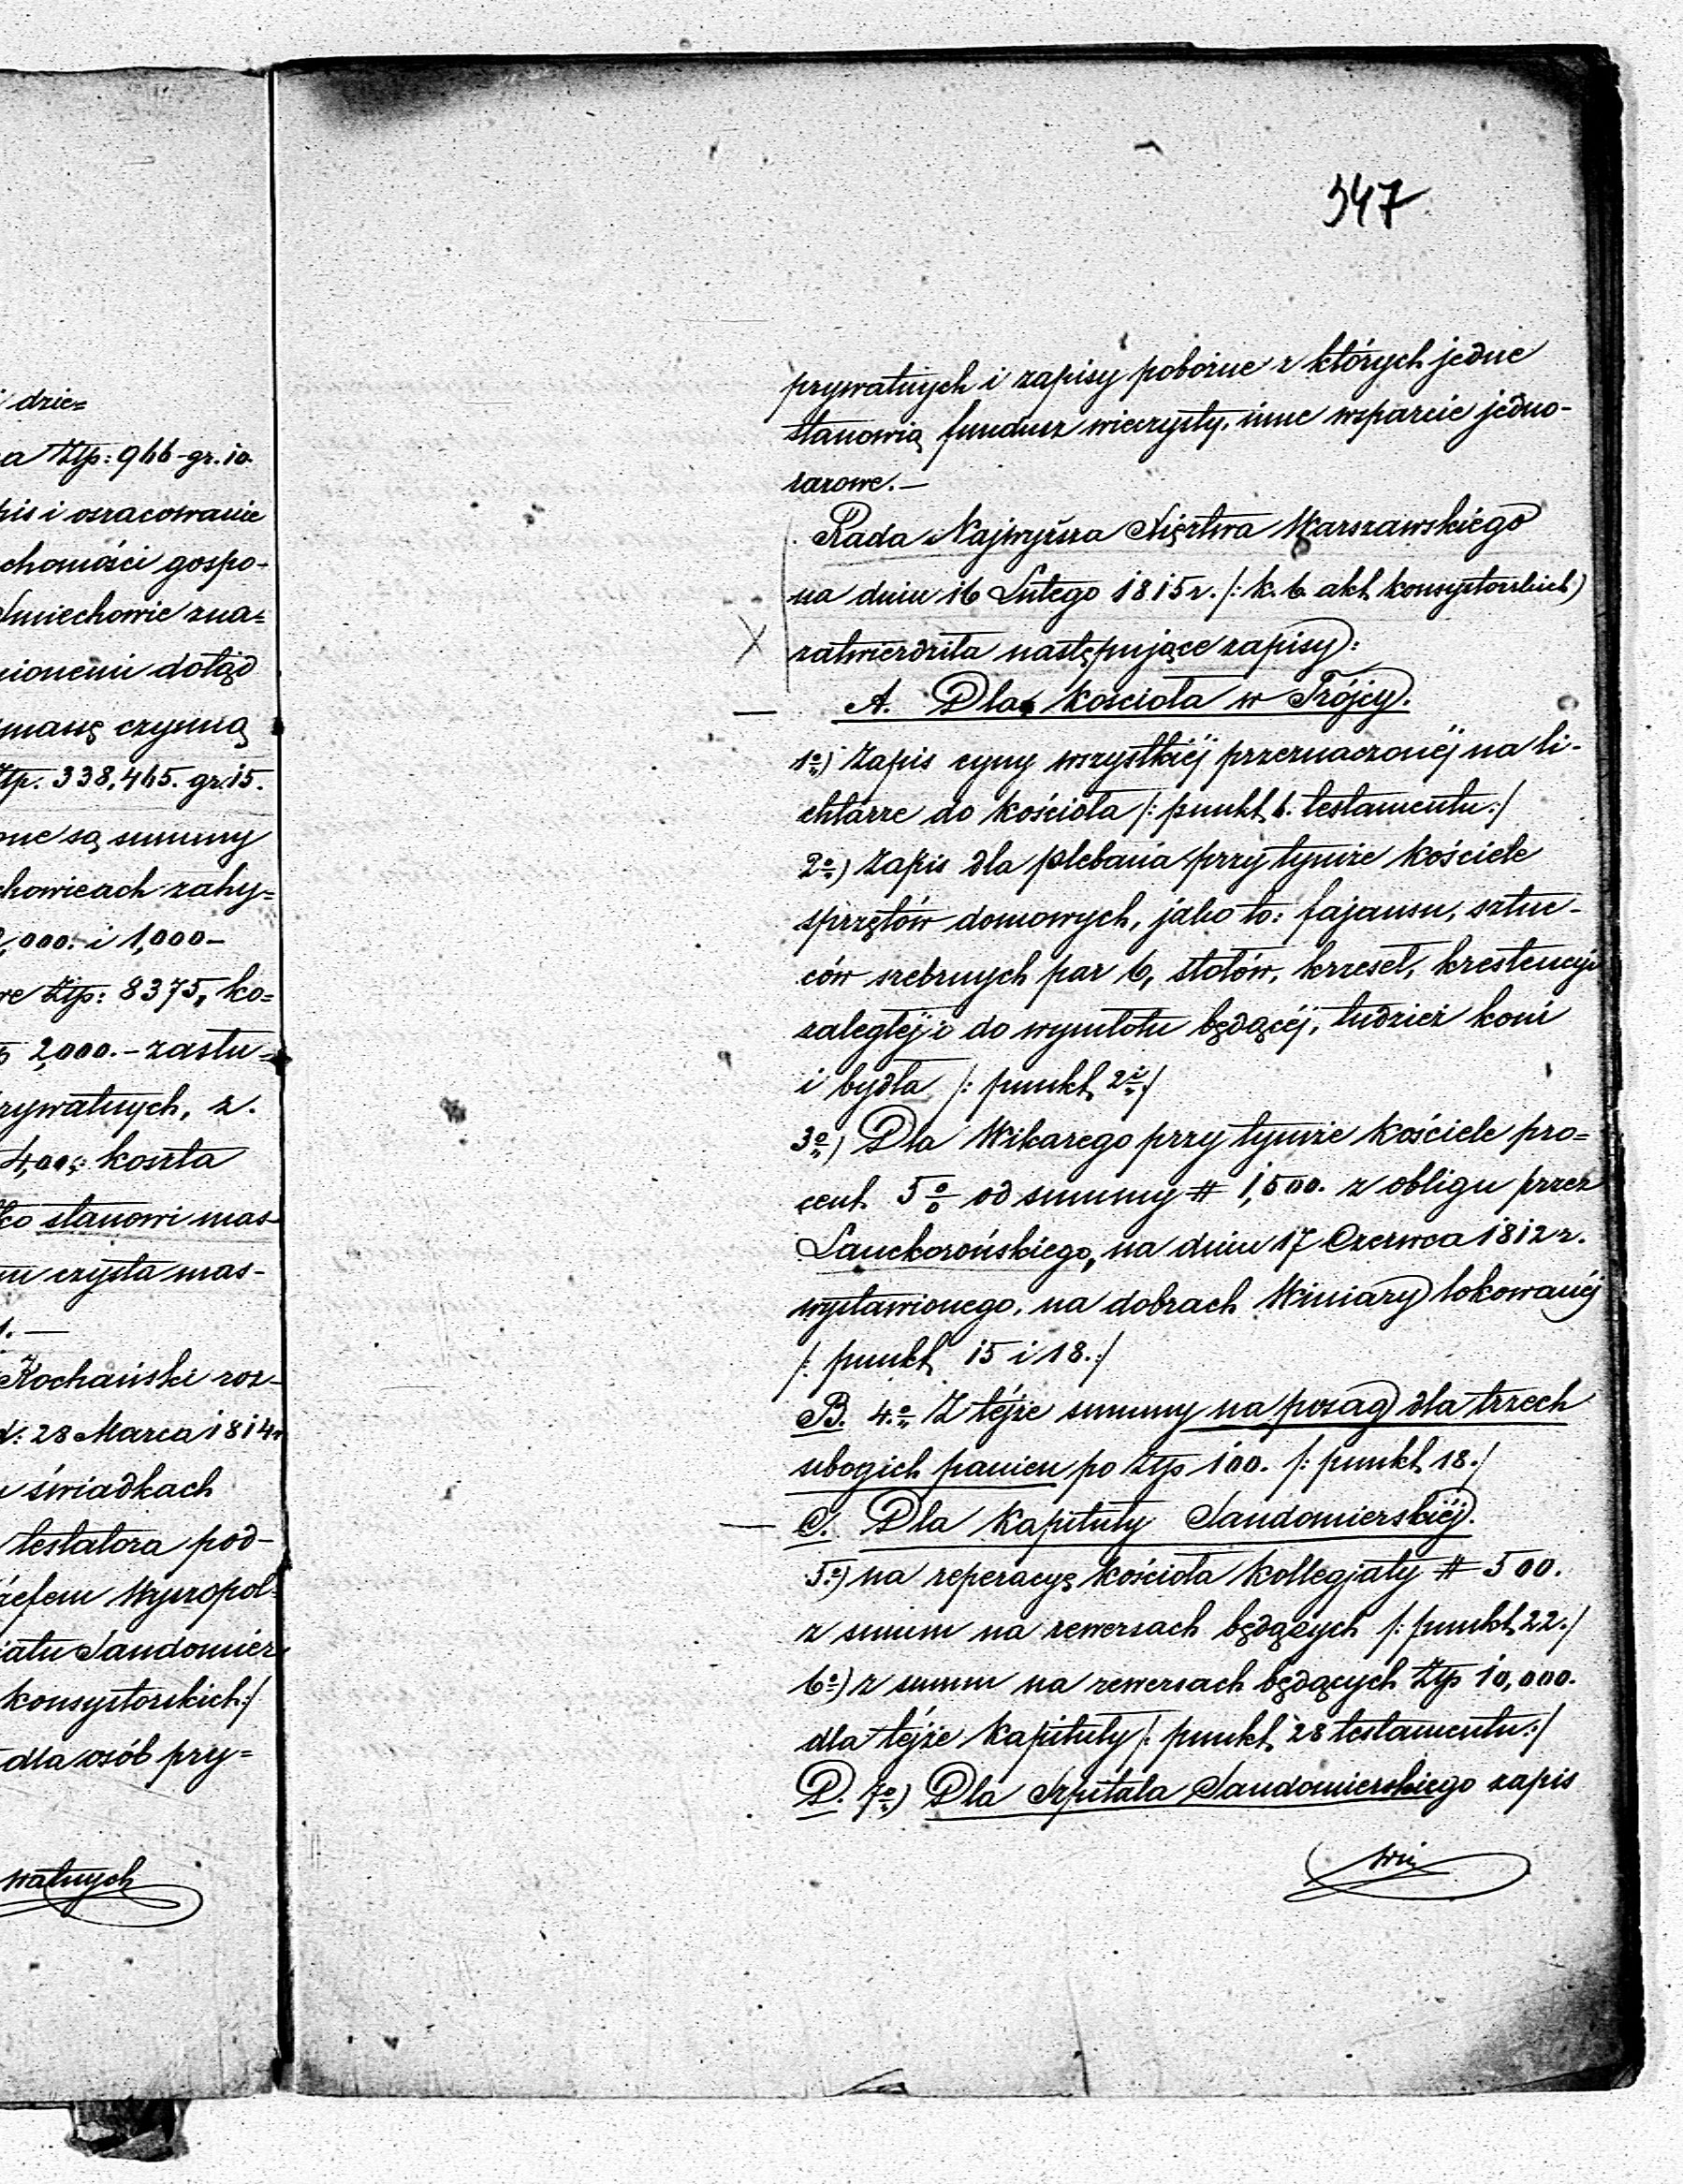 i dzie=
a Złp: 966 - gr. 10.
pis i oszacowanie
chomości gospo-
Śmiechowie zna=
nionemi dotąd
massę czynną
Złp. 338,465. gr. 15.
one są summy
chowicach zahy=
2,000. i 1,000 -
we Złp: 8375, ko=
5 2,000. - zastu=
rywatnych, z.
4,00 koszta
ko stanowi mas-
m czysta mas-
1. —
Kochański roz-
d: 28 Marca 1814 r
u świadkach
testatora pod-
zefem Wyropol=
iatu Sandomier
konsystorskich :/
dla osób pry=
watnych
347
prywatnych i zapisy pobożne z których jedne
stanowią fundusz wieczysty, inne wsparcie jedno-
razowe. —
Rada Najwyższa Xięztwa Warszawskiego
na dniu 16 Lutego 1815 r. /: k. 6. akt konsystorskich)
X zatwierdziła następujące zapisy:
— A. Dla kościoła w Trójcy.
1o) Zapis cyny wszystkiéj przeznaczonéj na li-
chtarze do kościoła /: punkt 6. testamentu :/
2o) Zapis dla plebania przy tymże kościele
sprzętów domowych, jako to: fajansu, sztuc-
ców srebrnych par 6, stołów, krzeseł, krestencyi
zaległéj i do wymłotu będącéj, tudzież koni
i bydła /: punkt 2i :/
3o) Dla Wikarego przy tymże kościele pro=
cent. 5 % od summy # 1,500. z obligu przez
Lanckorońskiego, na dniu 17 Czerwca 1812 r.
wystawionego, na dobrach Winiary lokowanéj
/: punkt 15 i 18. :/
B. 4.o Z téjże summy na posag dla trzech
ubogich panien po złp 100. /: punkt 18. /
— C. Dla Kapituły Sandomierskiéj.
5.o) na reperacyę kościoła kollegjaty # 500.
z summ na rewersach będących /: punkt 22. /
6o) z summ na rewersach będących Złp 10,000.
dla téjże Kapituły /: punkt 28 testamentu :/
D. 7o) Dla Szpitala Sandomierskiego zapis
wsi